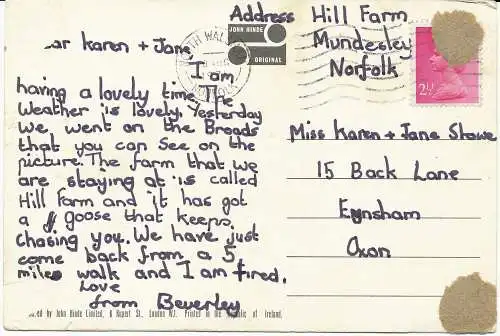 Address Hill Farm
Mundesley
Norfolk
JOHN HINDE
ORIGINAL
TH WAL
2½
ar Karen + Jane
I am
having a lovely time. The
Weather is lovely. Yesterday
we went on the Broads
that you can See on the
picture. The farm that we
are staying at is called
Hill Farm and it has got
a goose that keeps
chasing you. We have just
come back from a 5
miles walk and I am tired.
Love
from Beverley
Miss Karen + Jane Stowe
15 Back Lane
Eynsham
Oxon
ed by John Hinde Limited, 6 Rupert St., London W1. Printed in the Republic of Ireland.